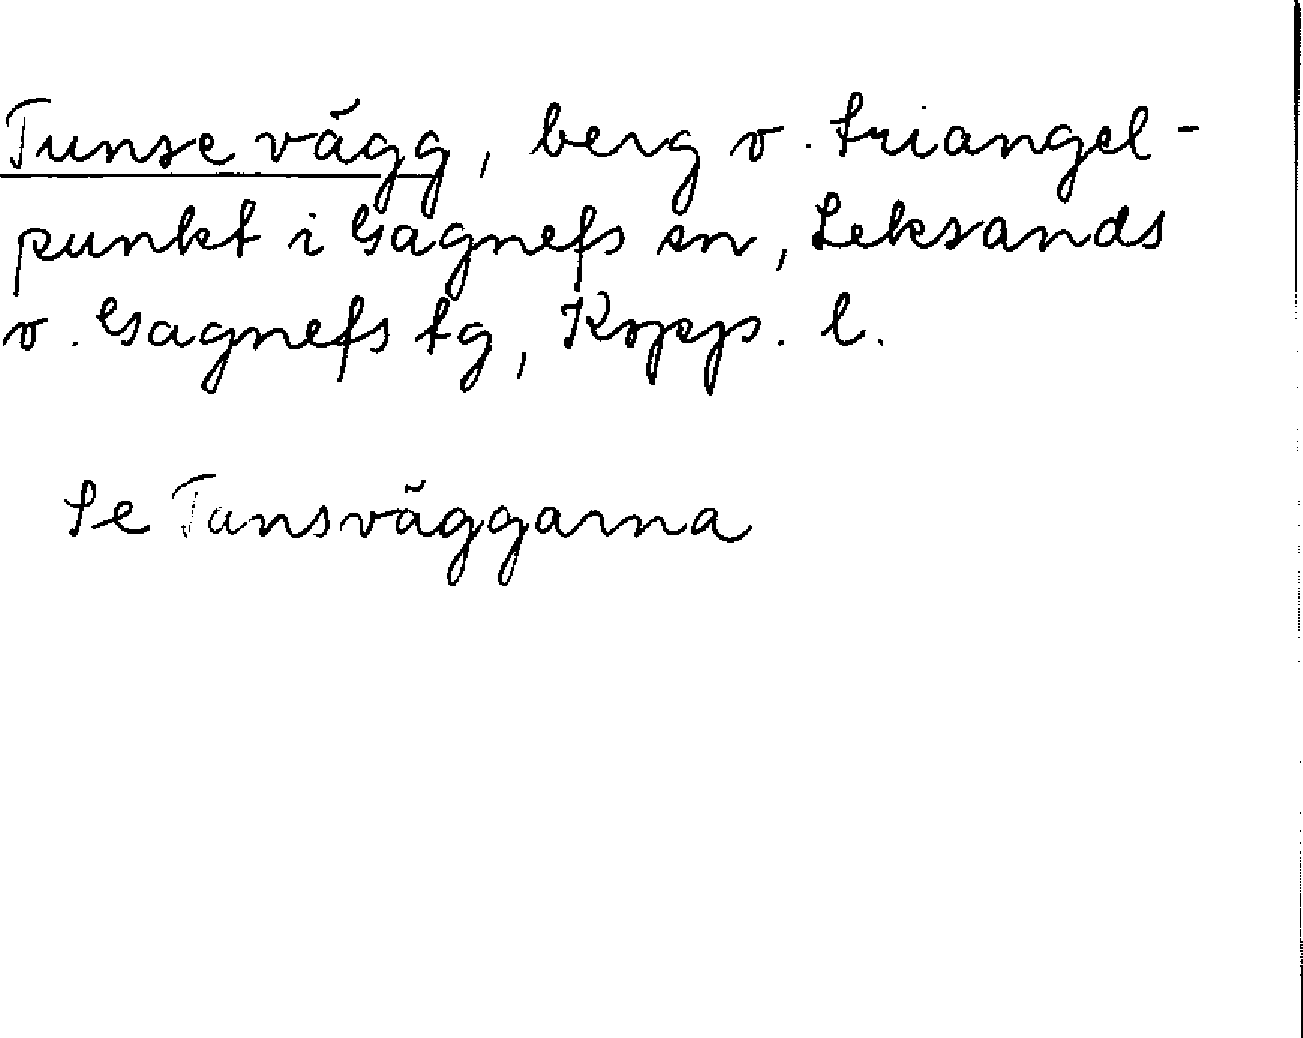 Tunse vägg, berg o. triangel-
punkt i Gagnefs sn, Leksands
o. Gagnefs tg, Kopp. l.
Se Tansväggarna